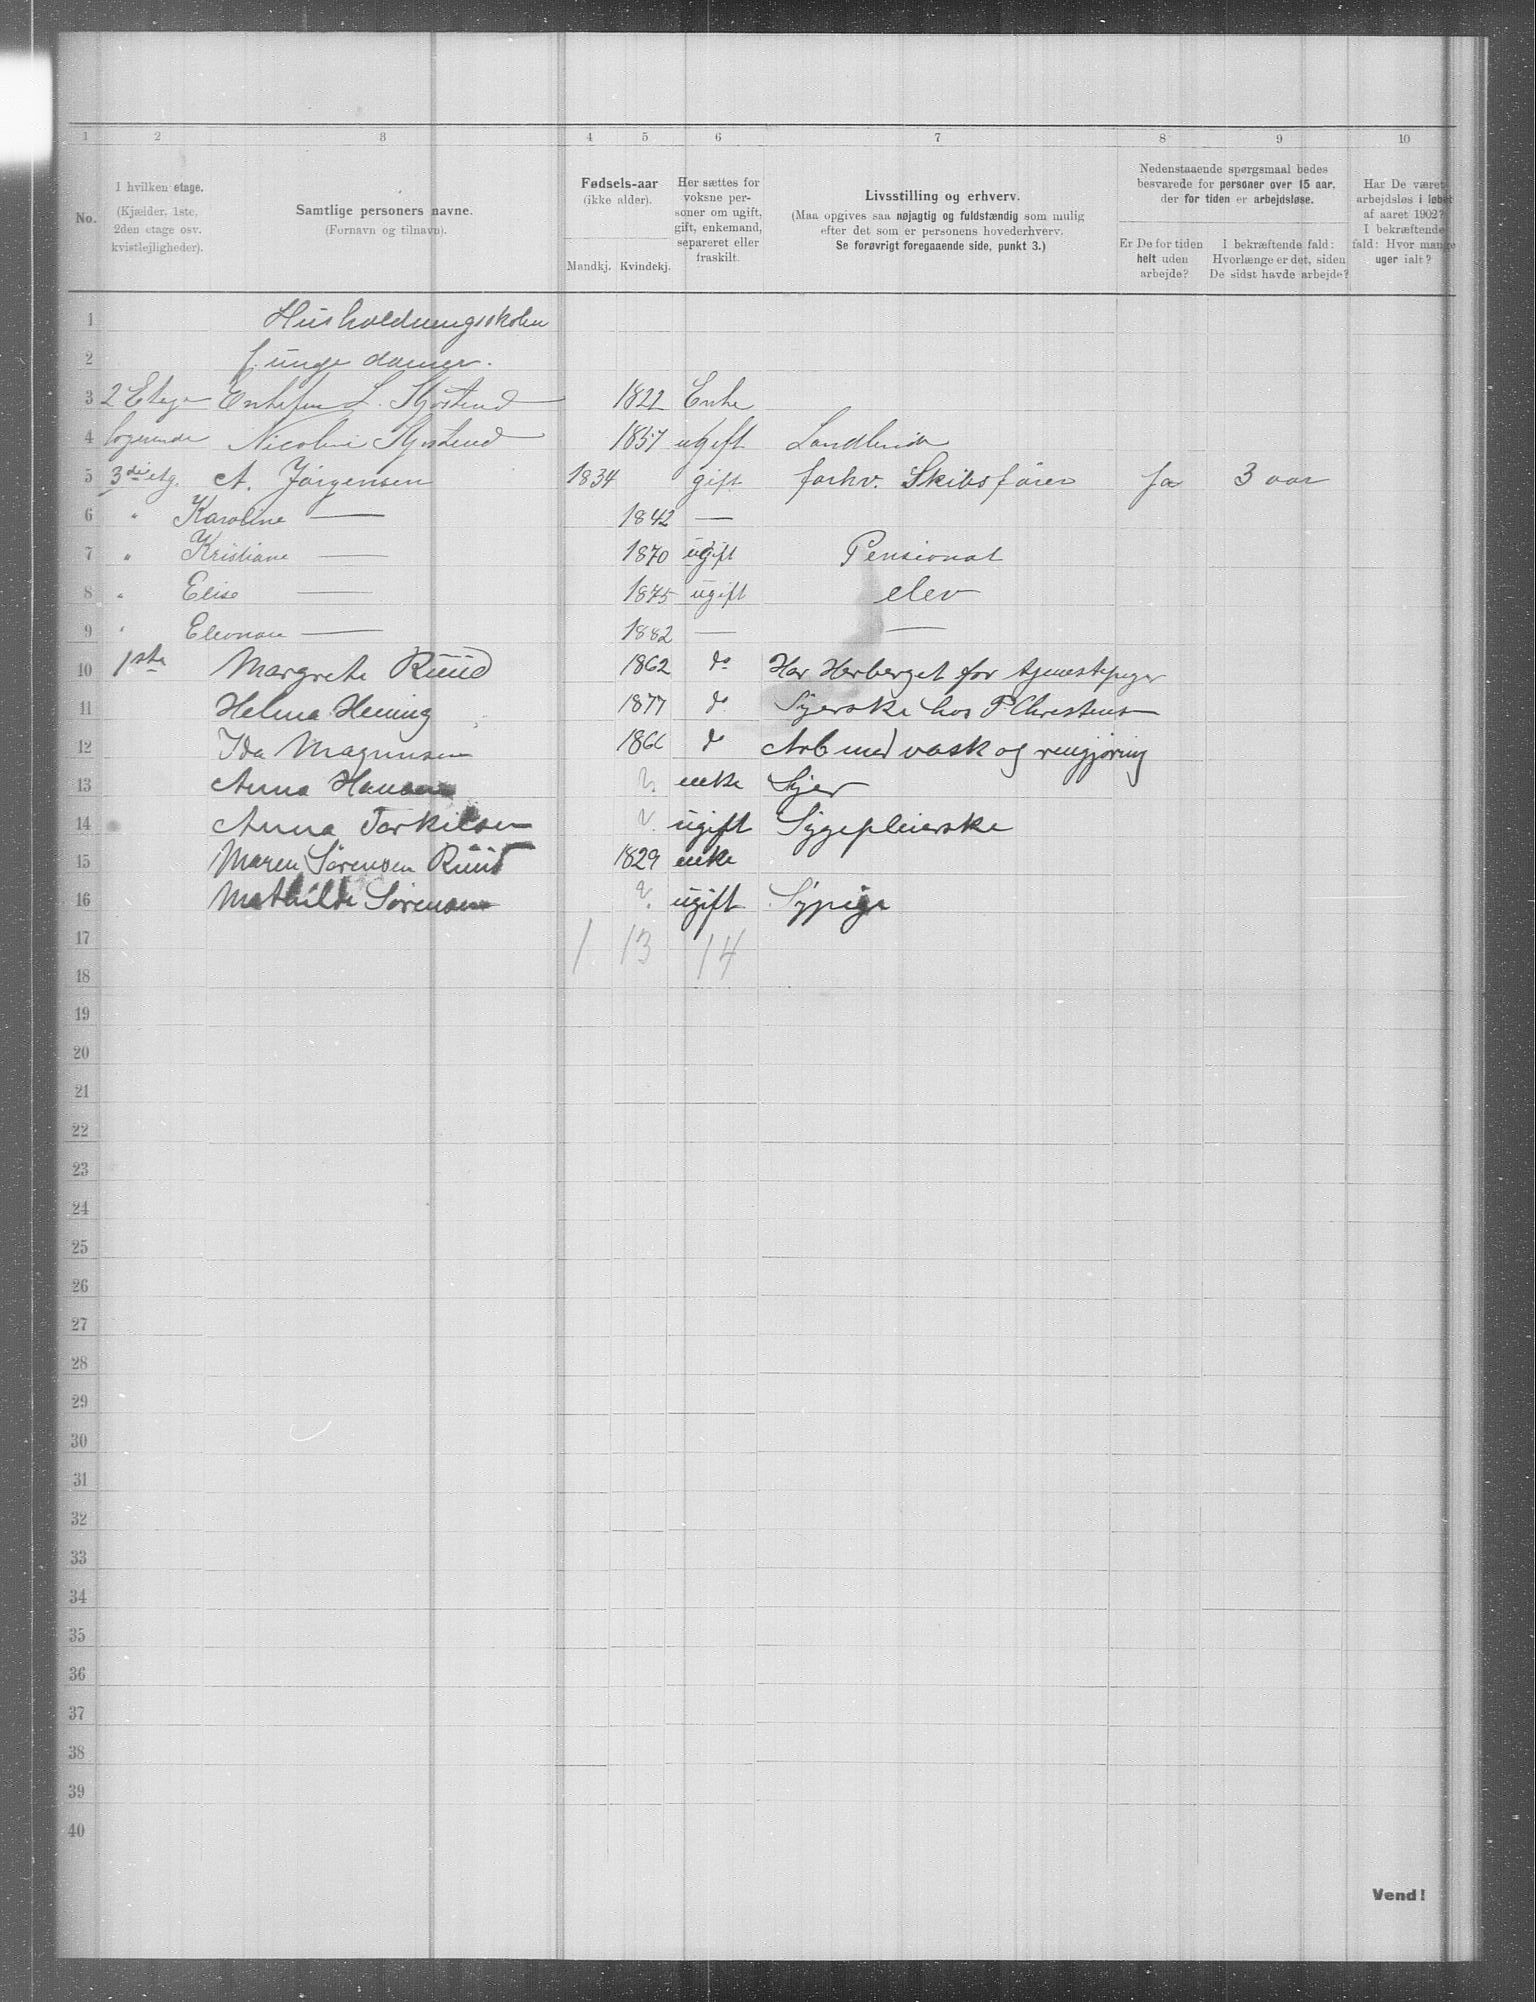 1 2 3 4 5 6 7 8 9 10
No.
I hvilken etage.
(Kjælder, 1ste,
2den etage osv.
kvistlejligheder).
Samtlige personers navne.
(Fornavn og tilnavn).
Fødsels-aar
(ikke alder).
Mandkj. Kvindekj.
Her sættes for
voksne per-
soner om ugift,
gift, enkemand,
separeret eller
fraskilt.
Livsstilling og erhverv.
(Maa opgives saa nøjagtig og fuldstændig som mulig
efter det som er personens hovederhverv.
Se forøvrigt foregaaende side, punkt 3.)
Nedenstaaende spørgsmaal bedes
besvarede for personer over 15 aar,
der for tiden er arbejdsløse.
Er De for tiden
helt uden
arbejde?
I bekræftende fald:
Hvorlænge er det, siden
De sidst havde arbejde?
Har De været
arbejdsløs i løbet
af aaret 1902?
I bekræftende
fald: Hvor mange
uger ialt?
1 Husholdningsskolen
2 f. unge damer.
3 2 Etage Enkefru L. 1822 Enke
4 logerende Nicoline 1857 ugift
5 3die etg. A. Jörgensen 1834 gift forhv. Skibsfører Ja 3 aar
6 " Karoline — 1842 —
7 " Kristiane — 1870 ugift Pensionat
8 " Elise — 1875 ugift elev
9 " Eleonore — 1882 — —
10 1ste Margrete Ruud 1862 do Har Herberget for tjenestepiger
11 Helma Hening 1877 do Syerske hos P. Christensen
12 Ida Magnusen 1866 do Arb med vask og rengjøring
13 Anna Hansen ?. enke Syer
14 Anna Torkilsen ?. ugift Sygepleierske
15 Maren Sørensen Ruud 1829 enke
16 Mathilde Sørensen ?. ugift Sypige
17 1 13 14
18
19
20
21
22
23
24
25
26
27
28
29
30
31
32
33
34
35
36
37
38
39
40
Vend!